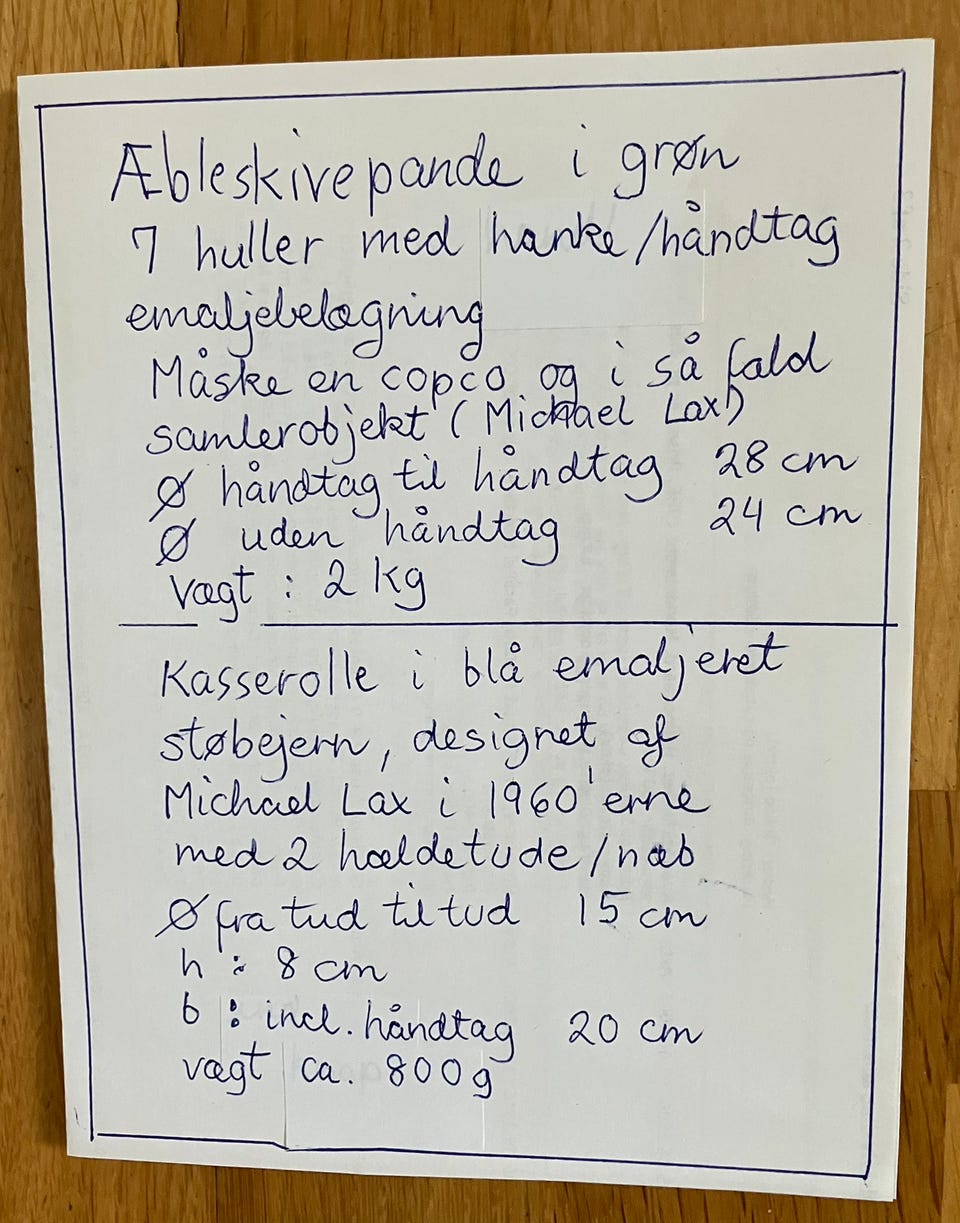 Æbleskivepande i grøn
7 huller med hanke/håndtag
emaljebelægning
Måske en copco og i så fald
samlerobjekt (Michael Lax!)
Ø håndtag til håndtag 28 cm
Ø uden håndtag 24 cm
Vægt : 2 kg
Kasserolle i blå emaljeret
støbejern, designet af
Michael Lax i 1960'erne
med 2 hældetude/næb
Ø fra tud til tud 15 cm
h : 8 cm
b : incl. håndtag 20 cm
vægt ca. 800g